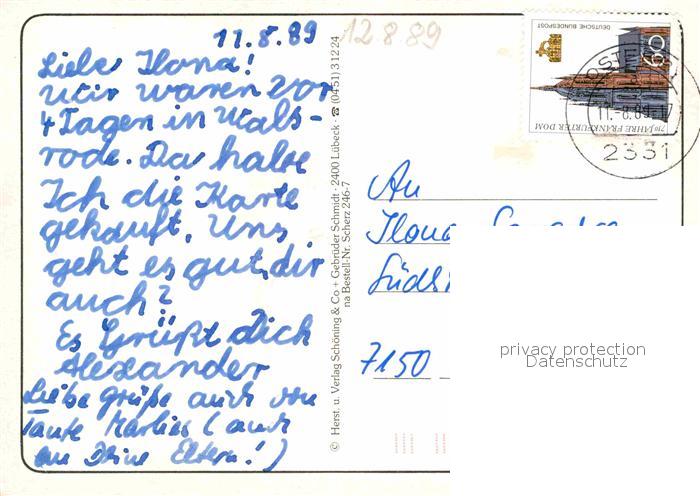 11.8.89
12 8 89
Liebe Ilona!
Wir waren vor
4 Tagen in Wals-
rode. Da habe
Ich die Karte
gekauft. Uns
geht es gut, dir
auch?
Es Grüßt Dich
Alexander
Liebe Grüße auch von
Tante Marlies (auch
an Deine Eltern!)
© Herst. u. Verlag Schöning & Co + Gebrüder Schmidt · 2400 Lübeck · ☎ (0451) 31224
na Bestell-Nr. Scherz 246-7
DEUTSCHE BUNDESPOST
60
750 JAHRE FRANKFURTER DOM
11.-8.89-17
2331
An
Ilona
7150
privacy protection
Datenschutz